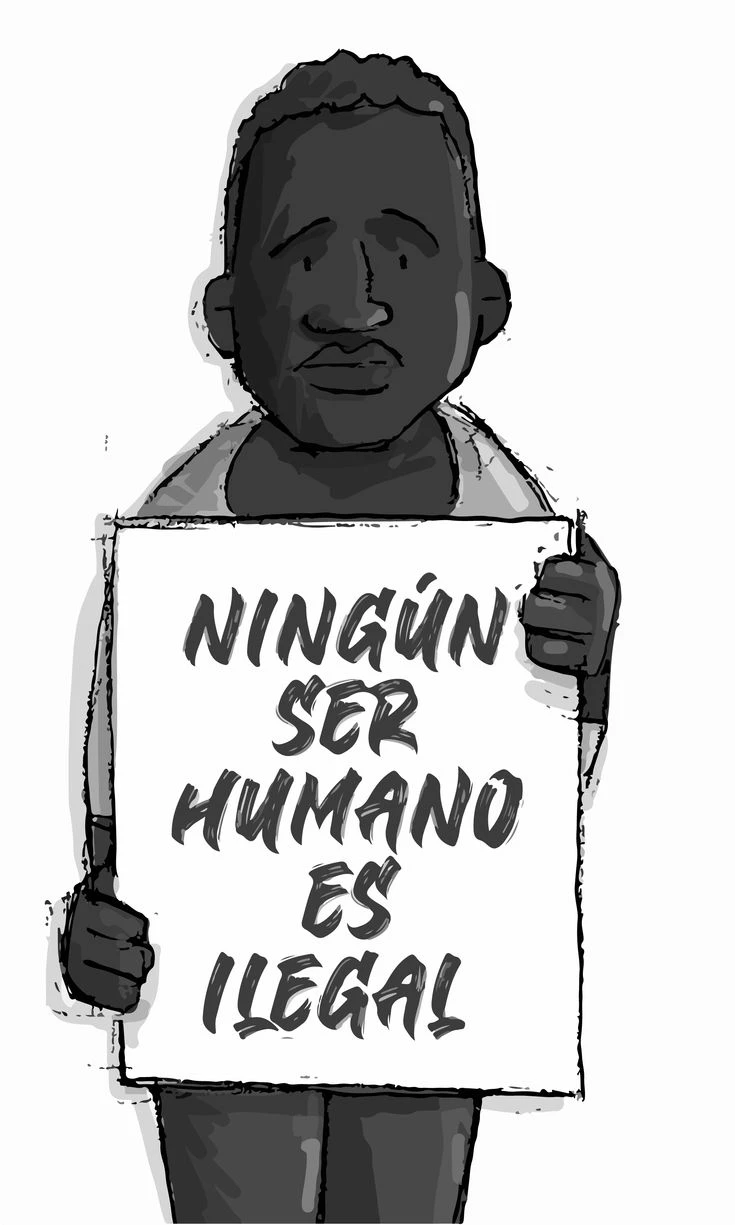 NINGÚN
SER
HUMANO
ES
ILEGAL